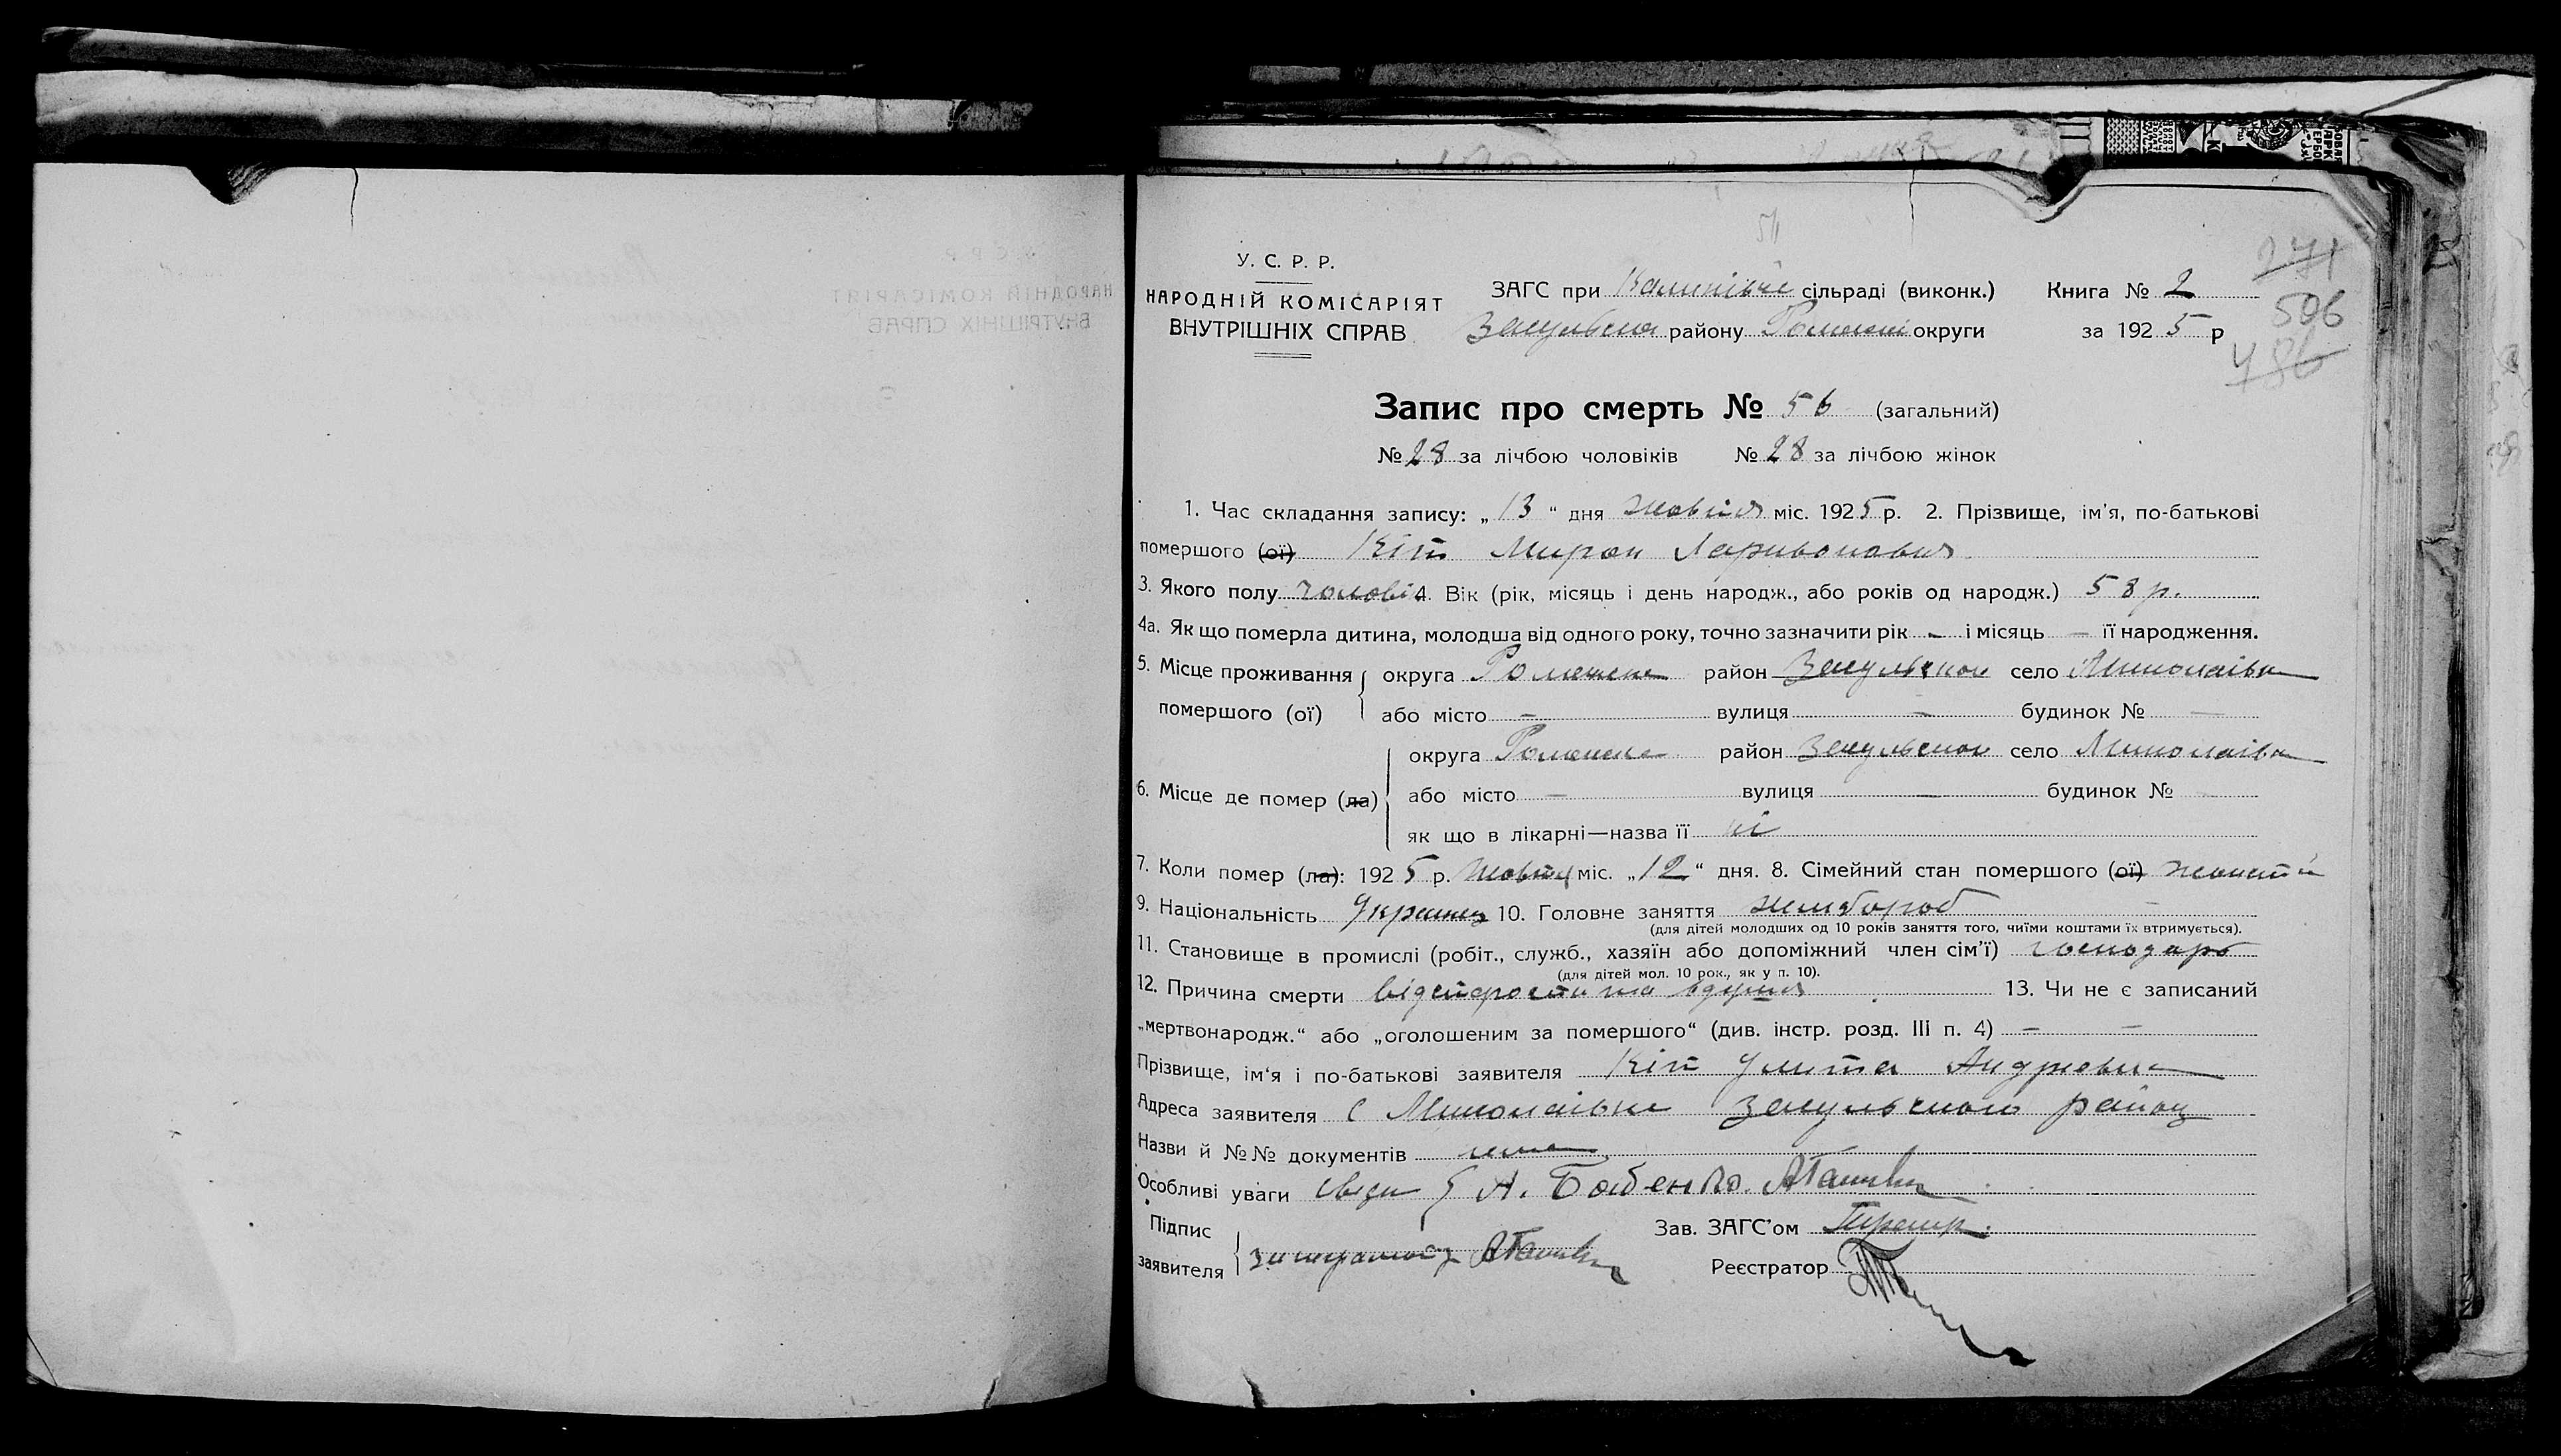 У. С. Р. Р.
НАРОДНІЙ КОМІСАРІЯТ
ВНУТРІШНІХ СПРАВ
ЗАГС при сільраді (виконк.) Книга № 2
району округи за 1925 р
271
506
486
Запис про смерть № 56 (загальний)
№ 28 за лічбою чоловіків № 28 за лічбою жінок
1. Час складання запису: „13“ дня жовтня міс. 1925 р. 2. Прізвище, ім'я, по-батькові
помершого (ої) Кіт Мирон Ларивонович
3. Якого полу чолові 4. Вік (рік, місяць і день народж., або років од народж.) 58 р.
4а. Як що померла дитина, молодша від одного року, точно зазначити рік – і місяць – її народження.
5. Місце проживання округа Роменська район село Миколаівка
помершого (ої) або місто – вулиця – будинок № –
округа Роменська район село Миколаівка
6. Місце де помер (ла) або місто – вулиця – будинок №
як що в лікарні—назва її ні
7. Коли помер (ла): 1925 р. жовтня міс. „12“ дня. 8. Сімейний стан помершого (ої)
9. Національність 10. Головне заняття хлібороб
(для дітей молодших од 10 років заняття того, чиїми коштами їх втримується).
11. Становище в промислі (робіт., служб., хазяїн або допоміжний член сім'ї) господарь
(для дітей мол. 10 рок., як у п. 10).
12. Причина смерти від старости та 13. Чи не є записаний
„мертвонародж.“ або „оголошеним за помершого“ (див. інстр. розд. III п. 4) – –
Прізвище, ім'я і по-батькові заявителя Кіт Улита Андріевна
Адреса заявителя с Миколаівка району
Назви й №№ документів нема
Особливі уваги А. Бабенко.
Підпис Зав. ЗАГС'ом
заявителя Реєстратор